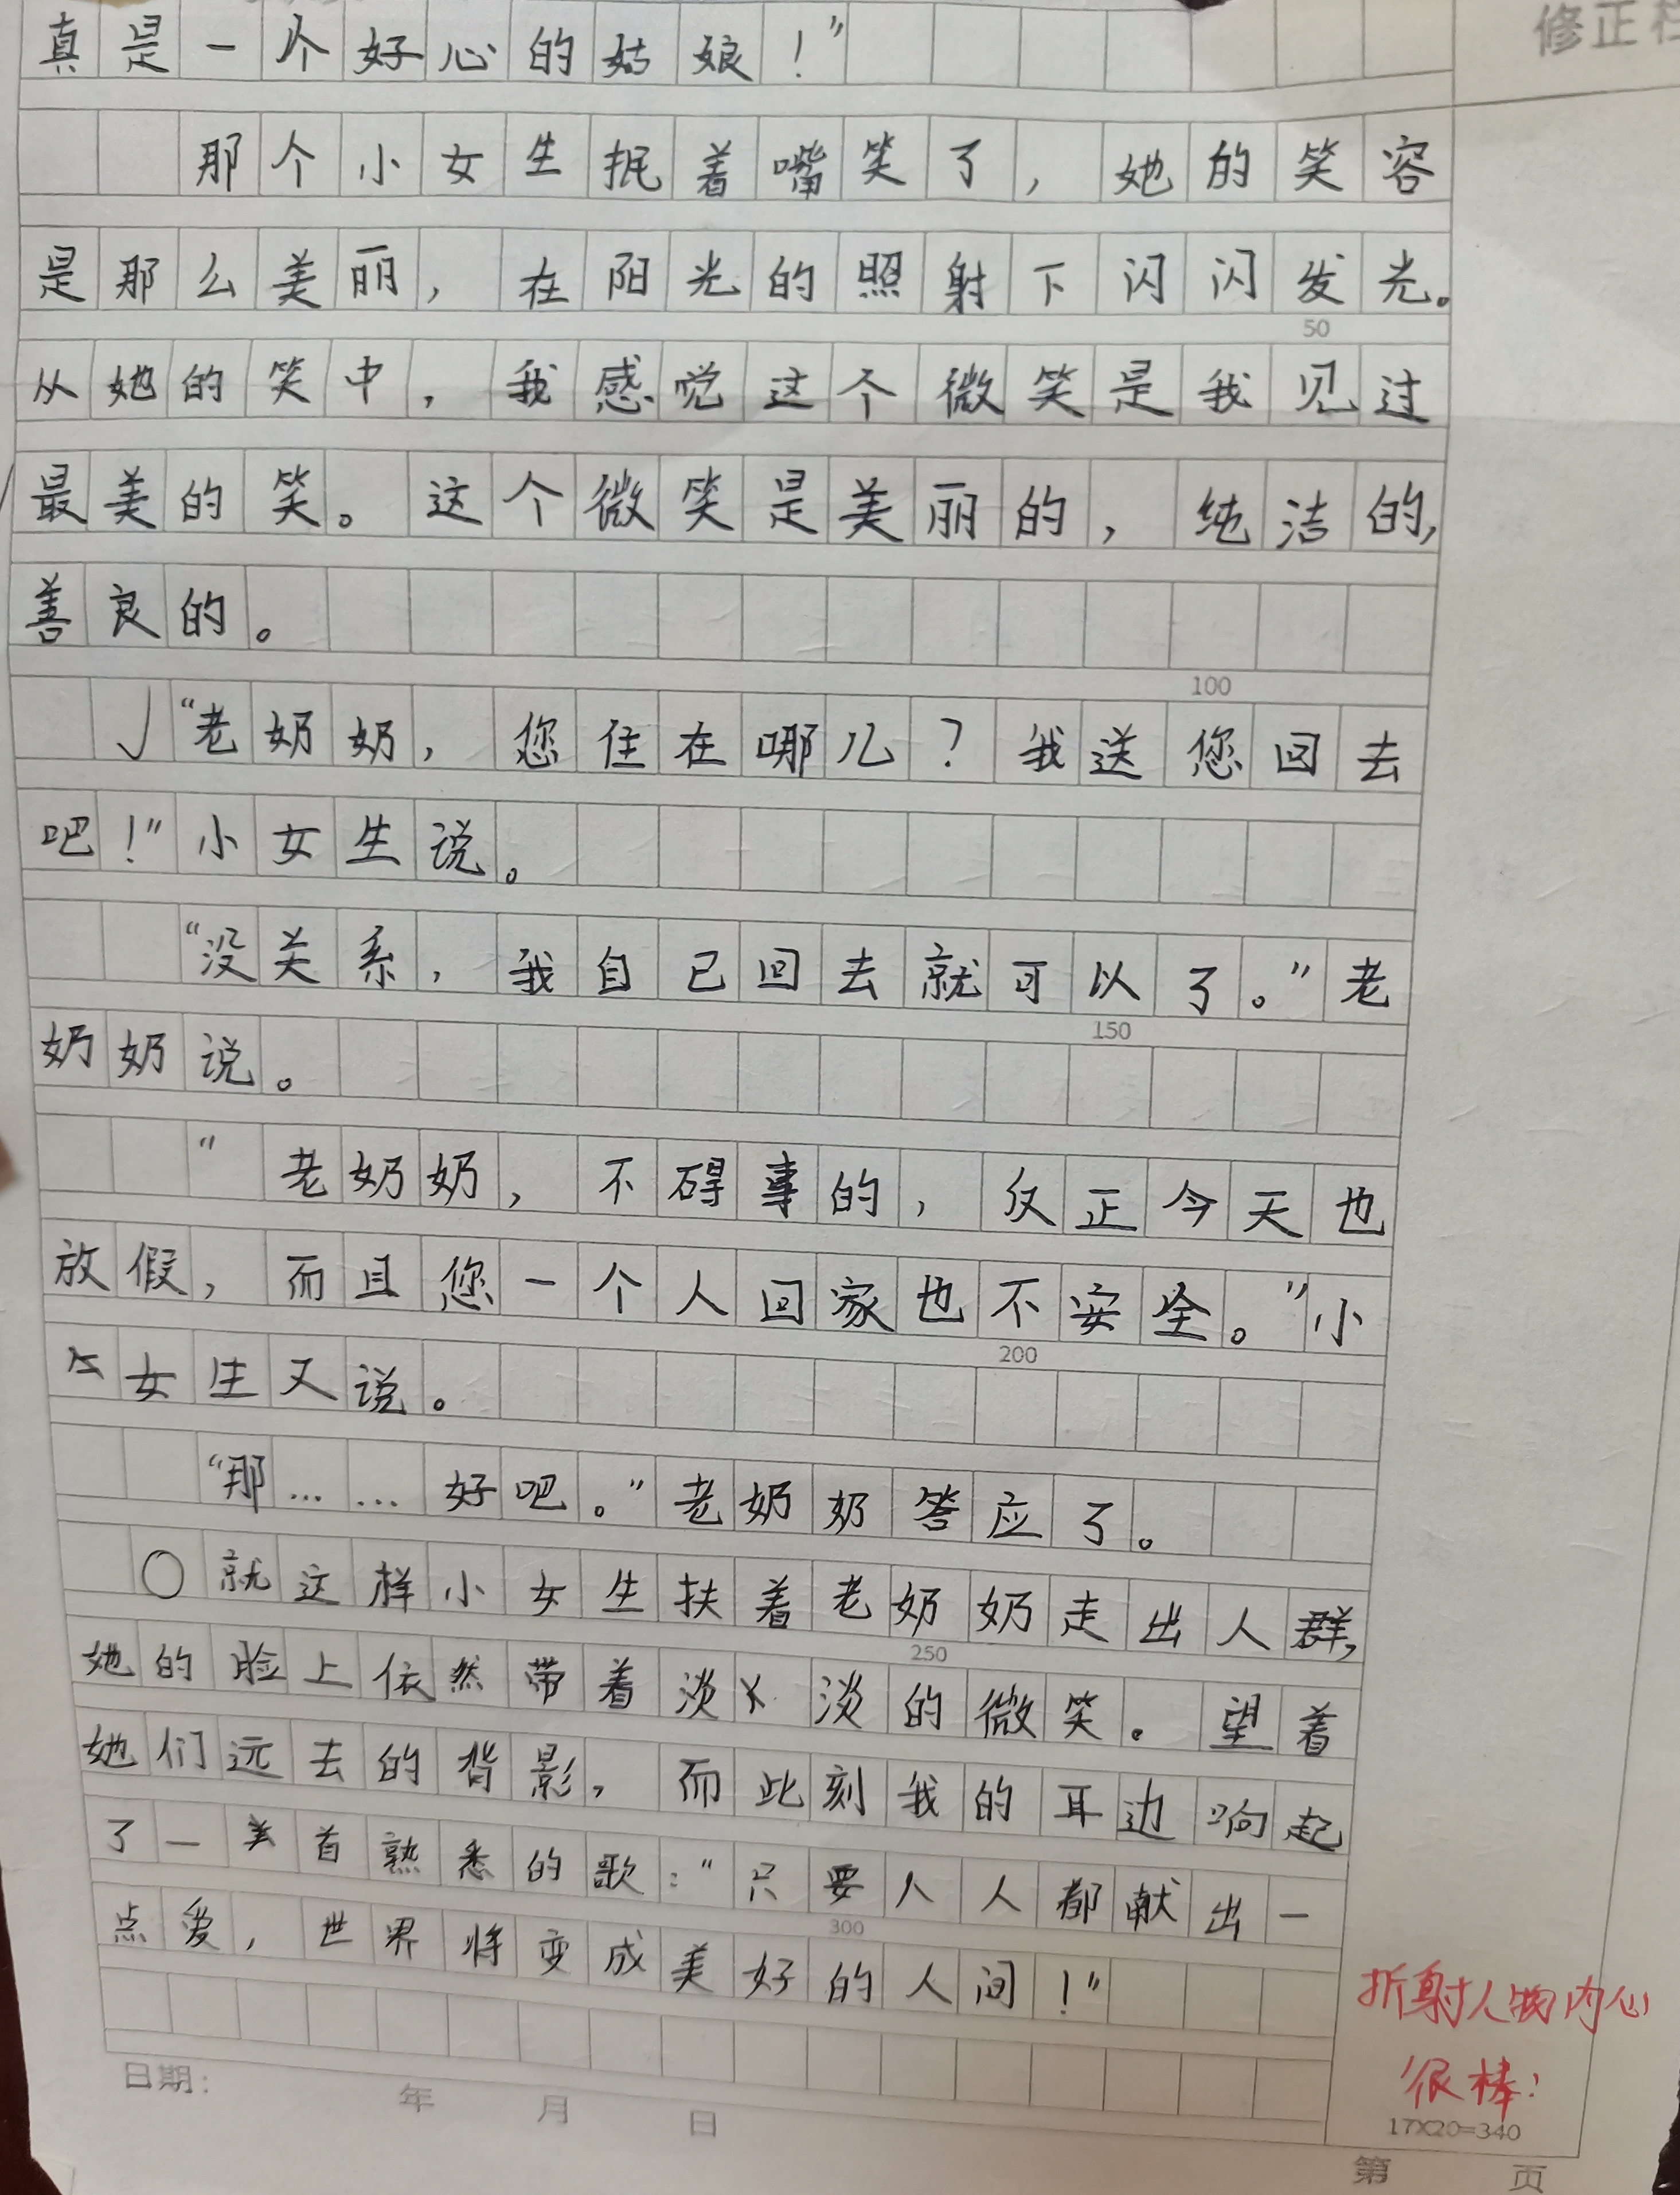 真是一个好心的姑娘！”
修正栏
那个小女生抿着嘴笑了，她的笑容
是那么美丽，在阳光的照射下闪闪发光。
50
从她的笑中，我感觉这个微笑是我见过
最美的笑。这个微笑是美丽的，纯洁的，
善良的。
100
“老奶奶，您住在哪儿？我送您回去
吧！”小女生说。
“没关系，我自己回去就可以了。”老
150
奶奶说。
“老奶奶，不碍事的，反正今天也
放假，而且您一个人回家也不安全。”小
200
女生又说。
“那……好吧。”老奶奶答应了。
就这样小女生扶着老奶奶走出人群，
250
她的脸上依然带着淡淡的微笑。望着
她们远去的背影，而此刻我的耳边响起
了一首熟悉的歌：“只要人人都献出一
300
点爱，世界将变成美好的人间！”
折射人物内心
很棒！
17X20=340
日期： 年 月 日
第 页